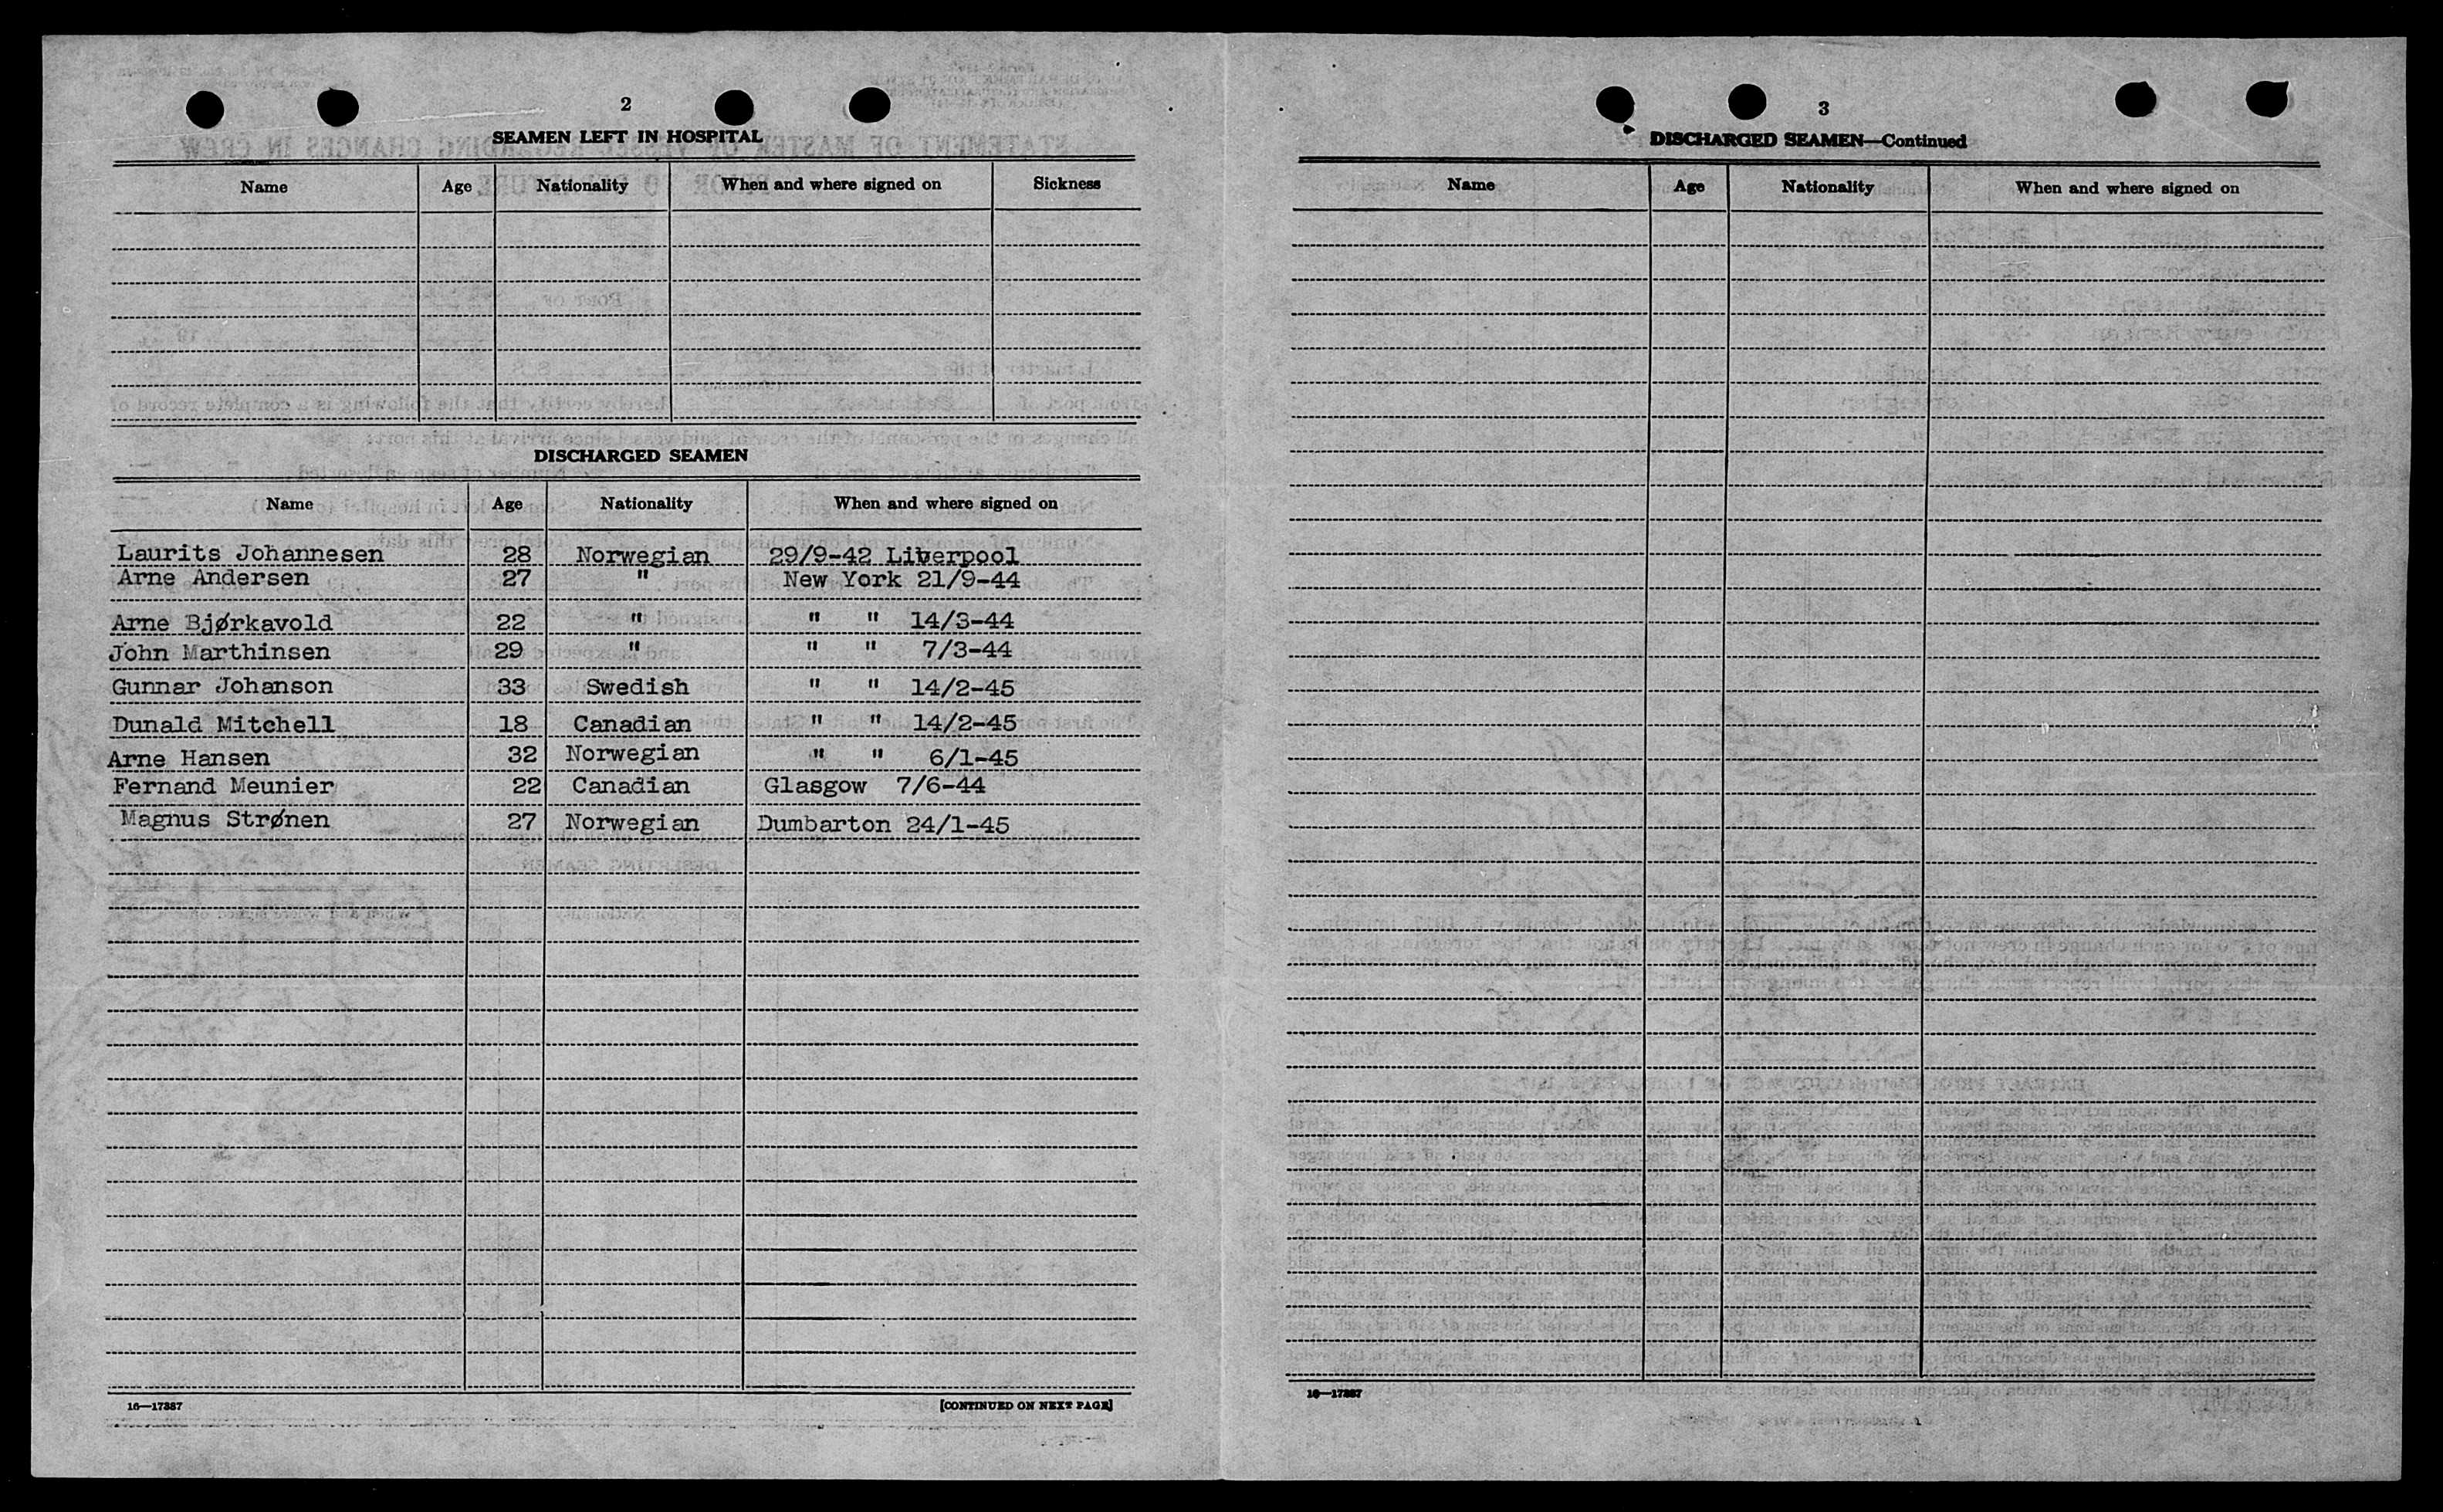 2
SEAMEN LEFT IN HOSPITAL
Name Age Nationality When and where signed on Sickness
DISCHARGED SEAMEN
Name Age Nationality When and where signed on
Laurits Johannesen 28 Norwegian 29/9-42 Liverpool
Arne Andersen 27 " New York 21/9-44
Arne Bjørkavold 22 " " " 14/3-44
John Marthinsen 29 " " " 7/3-44
Gunnar Johanson 33 Swedish " " 14/2-45
Dunald Mitchell 18 Canadian " " 14/2-45
Arne Hansen 32 Norwegian " " 6/1-45
Fernand Meunier 22 Canadian Glasgow 7/6-44
Magnus Strønen 27 Norwegian Dumbarton 24/1-45
16—17387 [CONTINUED ON NEXT PAGE]
3
DISCHARGED SEAMEN—Continued
Name Age Nationality When and where signed on
16—17387